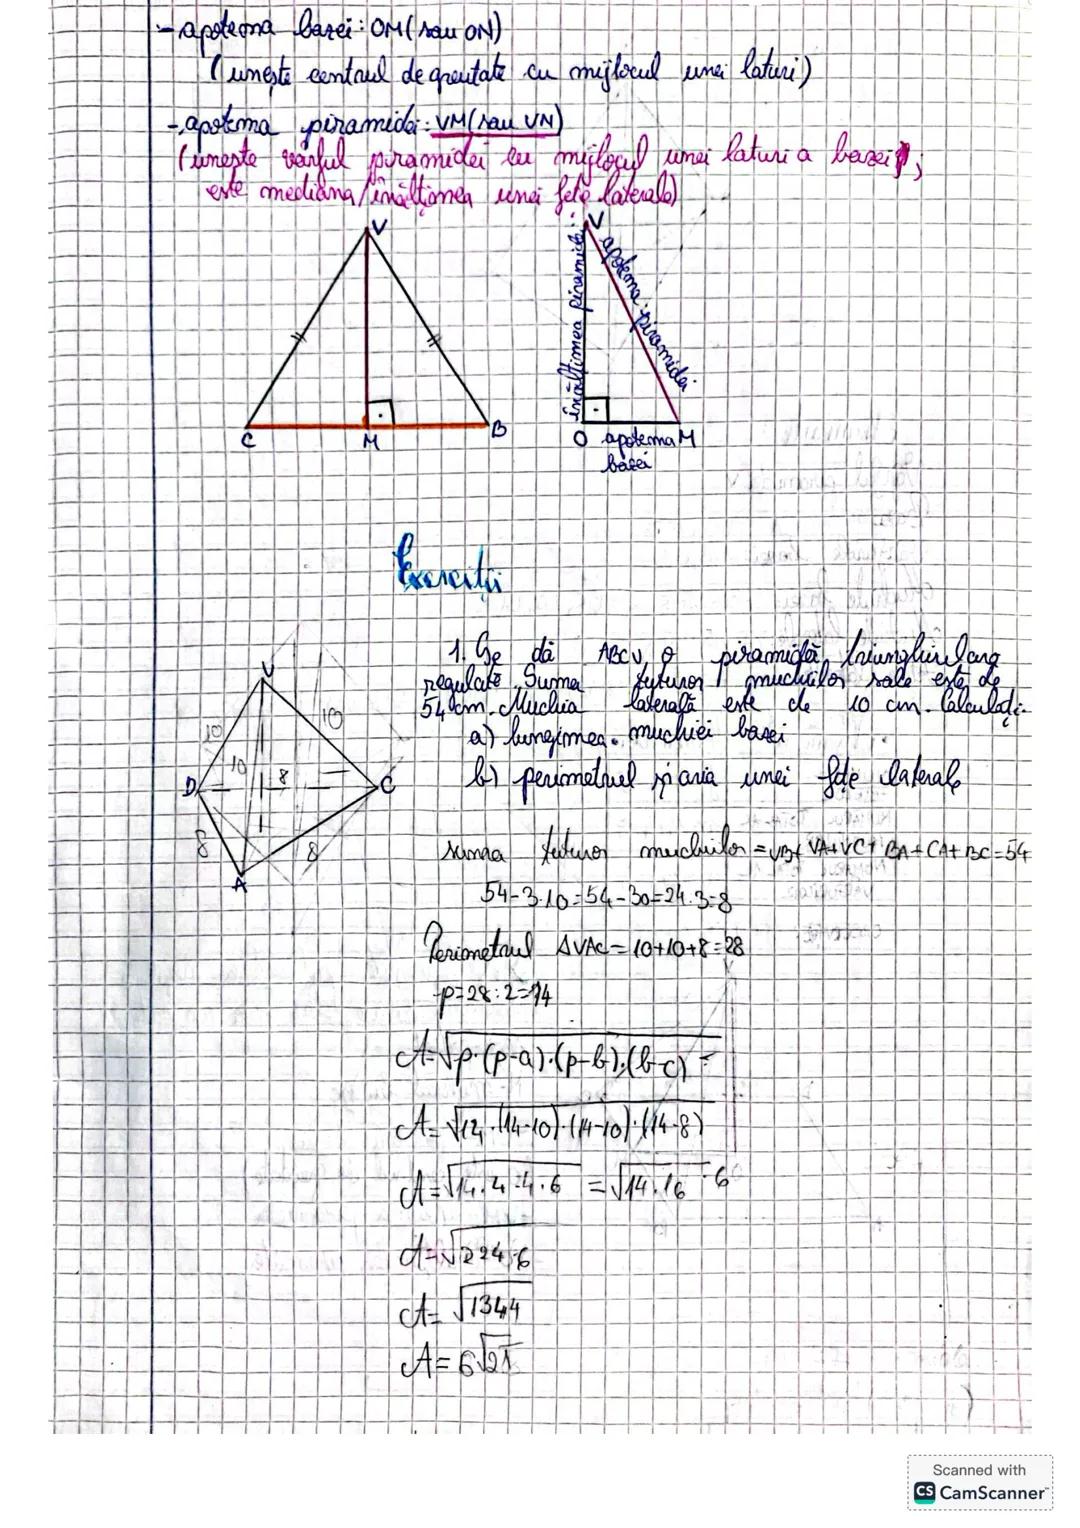 - apotema bazei: OM (sau ON)
(unește centrul de greutate cu mijlocul unei laturi)
- apotema piramidei: VM (sau VN)
(unește vârful piramidei cu mijlocul unei laturi a bazei,
este mediana/înălțimea unei fețe laterale)
V
C M B
V
înălțimea piramidei
apotema piramidei
O apotema M
bazei
Exerciții
1. Se dă ABCV, o piramidă triunghiulară
regulată. Suma tuturor muchiilor sale este de
54 cm. Muchia laterală este de 10 cm. Calculați:
a) lungimea muchiei bazei
b) perimetrul și aria unei fețe laterale
V
10 10
10 8
D C
8 8
A
suma tuturor muchiilor = VB + VA + VC + BA + CA + BC = 54
54-3·10=54-30=24:3=8
Perimetrul ΔVAC = 10+10+8=28
p=28:2=14
A=√p·(p-a)·(p-b)·(b-c) =
A=√14·(14-10)·(14-10)·(14-8)
A=√14·4·4·6 = √14·16·6
A=√224·6
A=√1344
A=6√21
Scanned with
CS CamScanner